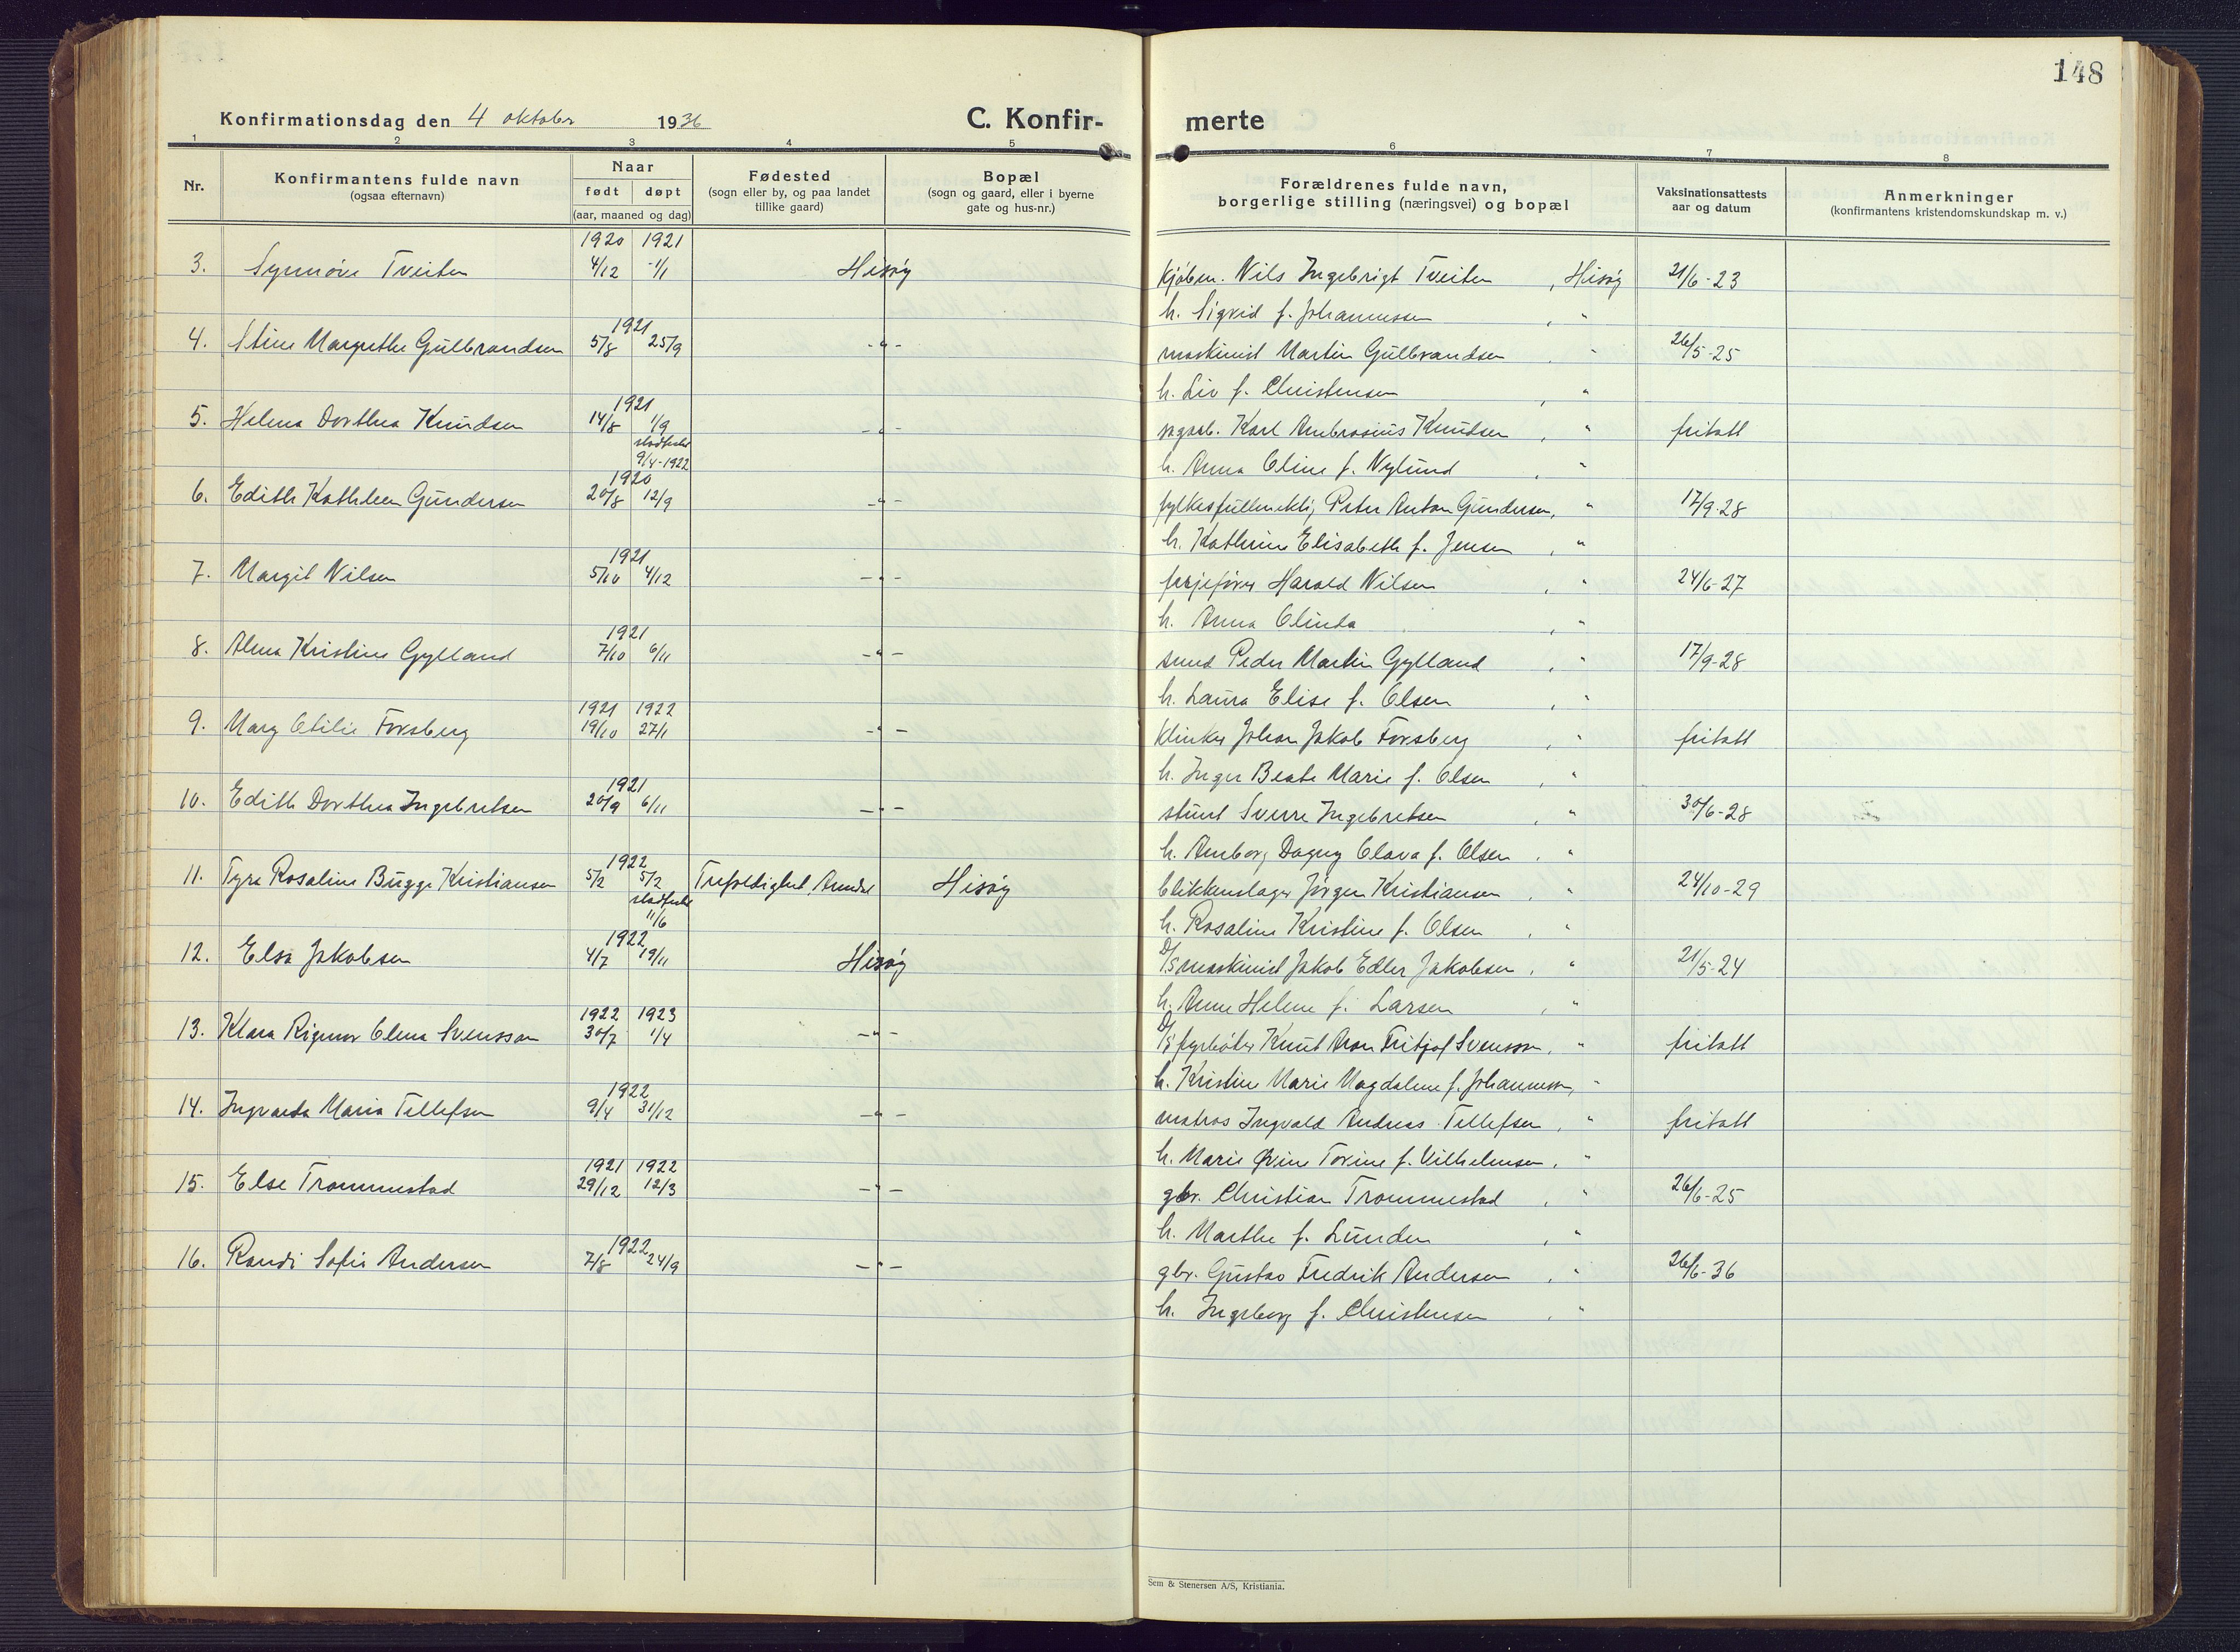 148
Konfirmationsdag den 4 oktober 1936 C. Konfir- merte
1 2 3 4 5 6 7 8
Nr. Konfirmantens fulde navn (ogsaa efternavn) Naar født døpt (aar, maaned og dag) Fødested (sogn eller by, og paa landet tillike gaard) Bopæl (sogn og gaard, eller i byerne gate og hus-nr.) Forældrenes fulde navn, borgerlige stilling (næringsvei) og bopæl Vaksinationsattests aar og datum Anmerkninger (konfirmantens kristendomskundskap m. v.)
1920 1921
3. Synnöve Tveiten 4/12 1/1 Hisöy kjöbm. Nils Ingebrigt Tveiten, Hisöy 21/6-23
h. Sigrid f. Johannessen, "
1921
4. Stine Margrethe Gulbrandsen 5/8 25/9 -"- maskinist Martin Gulbrandsen, " 26/5-25
h. Liv f. Christensen, "
1921
5. Helena Dorthea Knudsen 14/8 1/9 -"- sagarb. Karl Ambrosius Knudsen, " fritatt
stadfestet
9/4-1922
h. Anna Oline f. Nylund, "
1920
6. Edith Kathleen Gundersen 20/8 12/9 -"- fylkesfullmektig Peter Anton Gundersen, " 17/9-28
h. Kathrine Elisabeth f. Jensen, "
1921
7. Margit Nilsen 5/10 4/12 -"- Harald Nilsen, " 24/6-27
h. Anna Olinda, "
1921
8. Alma Kristine Gylland 7/10 6/11 -"- smed Peder Martin Gylland, " 17/9-28
h. Laura Elise f. Olsen, "
1921 1922
9. Mary Otilie Forsberg 19/10 27/1 -"- klinker Johan Jakob Forsberg, " fritatt
h. Inger Beate Marie f. Olsen, "
1921
10. Edith Dorthea Ingebretsen 20/9 6/11 -"- stuert Sverre Ingebretsen, " 30/6-28
h. Amborg Dagny Olava f. Olsen, "
1922
11. Tyra Rosaline Bugge Kristiansen 5/2 5/2 Trefoldighet, Arendal Hisöy blikkenslager Jörgen Kristiansen, " 24/10-29
stadfestet
11/6
h. Rosaline Kristine f. Olsen, "
1922
12. Elsa Jakobsen 4/7 19/11 Hisöy D/S maskinist Jakob Edler Jakobsen, " 21/5-24
h. Anne Helene f. Larsen, "
1922 1923
13. Klara Rigmor Olena Svensson 30/7 1/4 -"- D/S fyrböter Knut Aron Fritjof Svensson, " fritatt
h. Kristine Marie Magdalene f. Johannessen, "
1922
14. Ingvarda Maria Tellefsen 9/4 31/12 -"- matros Ingvald Andreas Tellefsen, " fritatt
h. Marie Övine Tovine f. Vilhelmsen, "
1921 1922
15. Else Trommestad 29/12 12/3 -"- gbr. Christian Trommestad, " 26/6-25
h. Marthe f. Lunden, "
1922
16. Randi Sofie Andersen 7/8 24/9 -"- gbr. Gustav Fredrik Andersen, " 26/6-36
h. Ingeborg f. Christensen, "
Sem & Stenersen A/S, Kristiania.